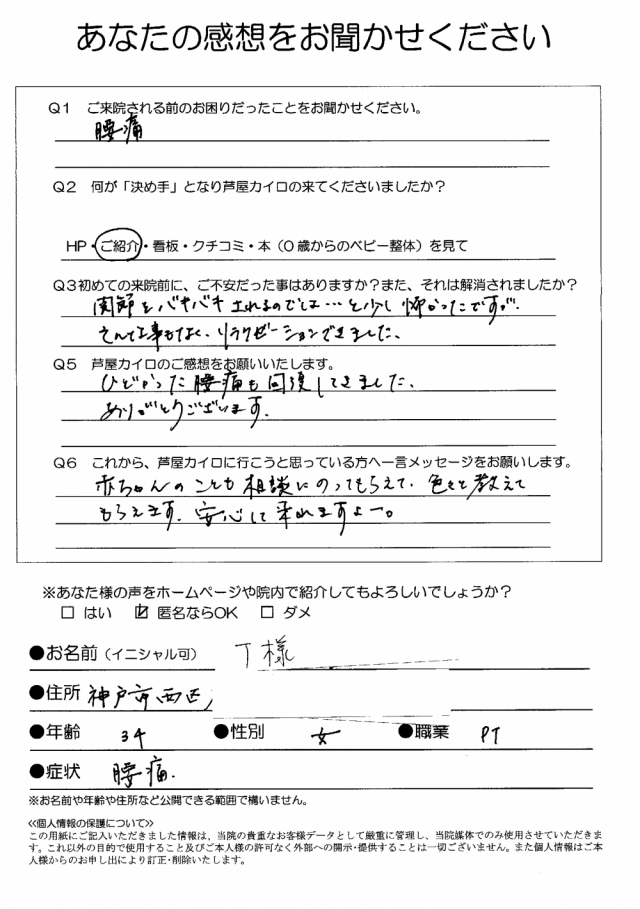 あなたの感想をお聞かせください
Q1 ご来院される前のお困りだったことをお聞かせください。
腰痛
Q2 何が「決め手」となり芦屋カイロの来てくださいましたか？
HP・ご紹介・看板・クチコミ・本（0歳からのベビー整体）を見て
Q3初めての来院前に、ご不安だった事はありますか？また、それは解消されましたか？
関節をバキバキされるのでは…と少し怖かったですが、
そんな事もなく、リラクゼーションできました。
Q5 芦屋カイロのご感想をお願いいたします。
ひどかった腰痛も回復してきました。
ありがとうございます。
Q6 これから、芦屋カイロに行こうと思っている方へ一言メッセージをお願いします。
赤ちゃんのことも相談にのってもらえて、色々と教えて
もらえます。安心して来れますよー。
※あなた様の声をホームページや院内で紹介してもよろしいでしょうか？
□ はい ☑ 匿名ならOK □ ダメ
●お名前（イニシャル可） T様
●住所 神戸市西区
●年齢 34 ●性別 女 ●職業 PT
●症状 腰痛.
※お名前や年齢や住所など公開できる範囲で構いません。
≪個人情報の保護について≫
この用紙にご記入いただきました情報は、当院の貴重なお客様データとして厳重に管理し、当院媒体でのみ使用させていただきま
す。これ以外の目的で使用すること及びご本人様の許可なく外部への開示・提供することは一切ございません。また個人情報はご本
人様からのお申し出により訂正・削除いたします。